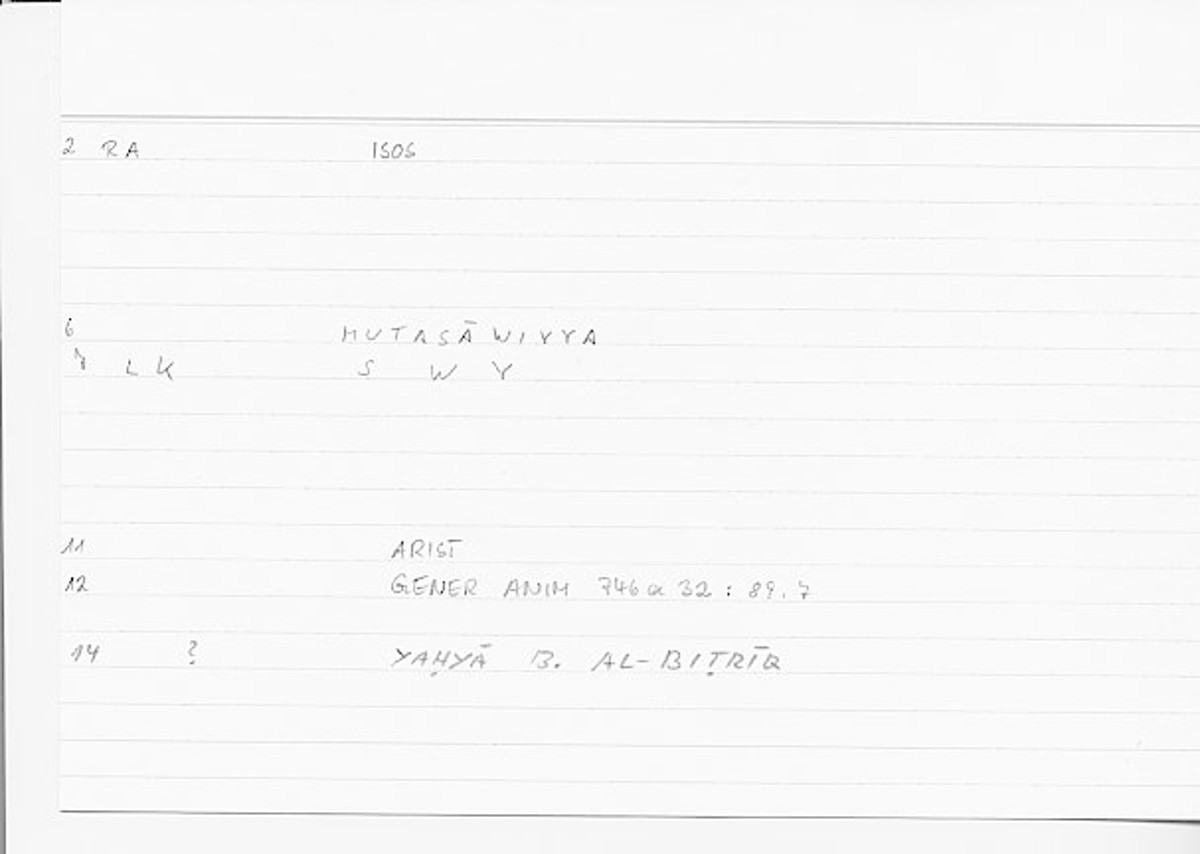 2 RA ISOS
6 MUTASĀWIYYA
7 LK S W Y
11 ARIST
12 GENER ANIM 746a32 : 89.7
14 ? YAḤYĀ B. AL-BIṬRĪQ